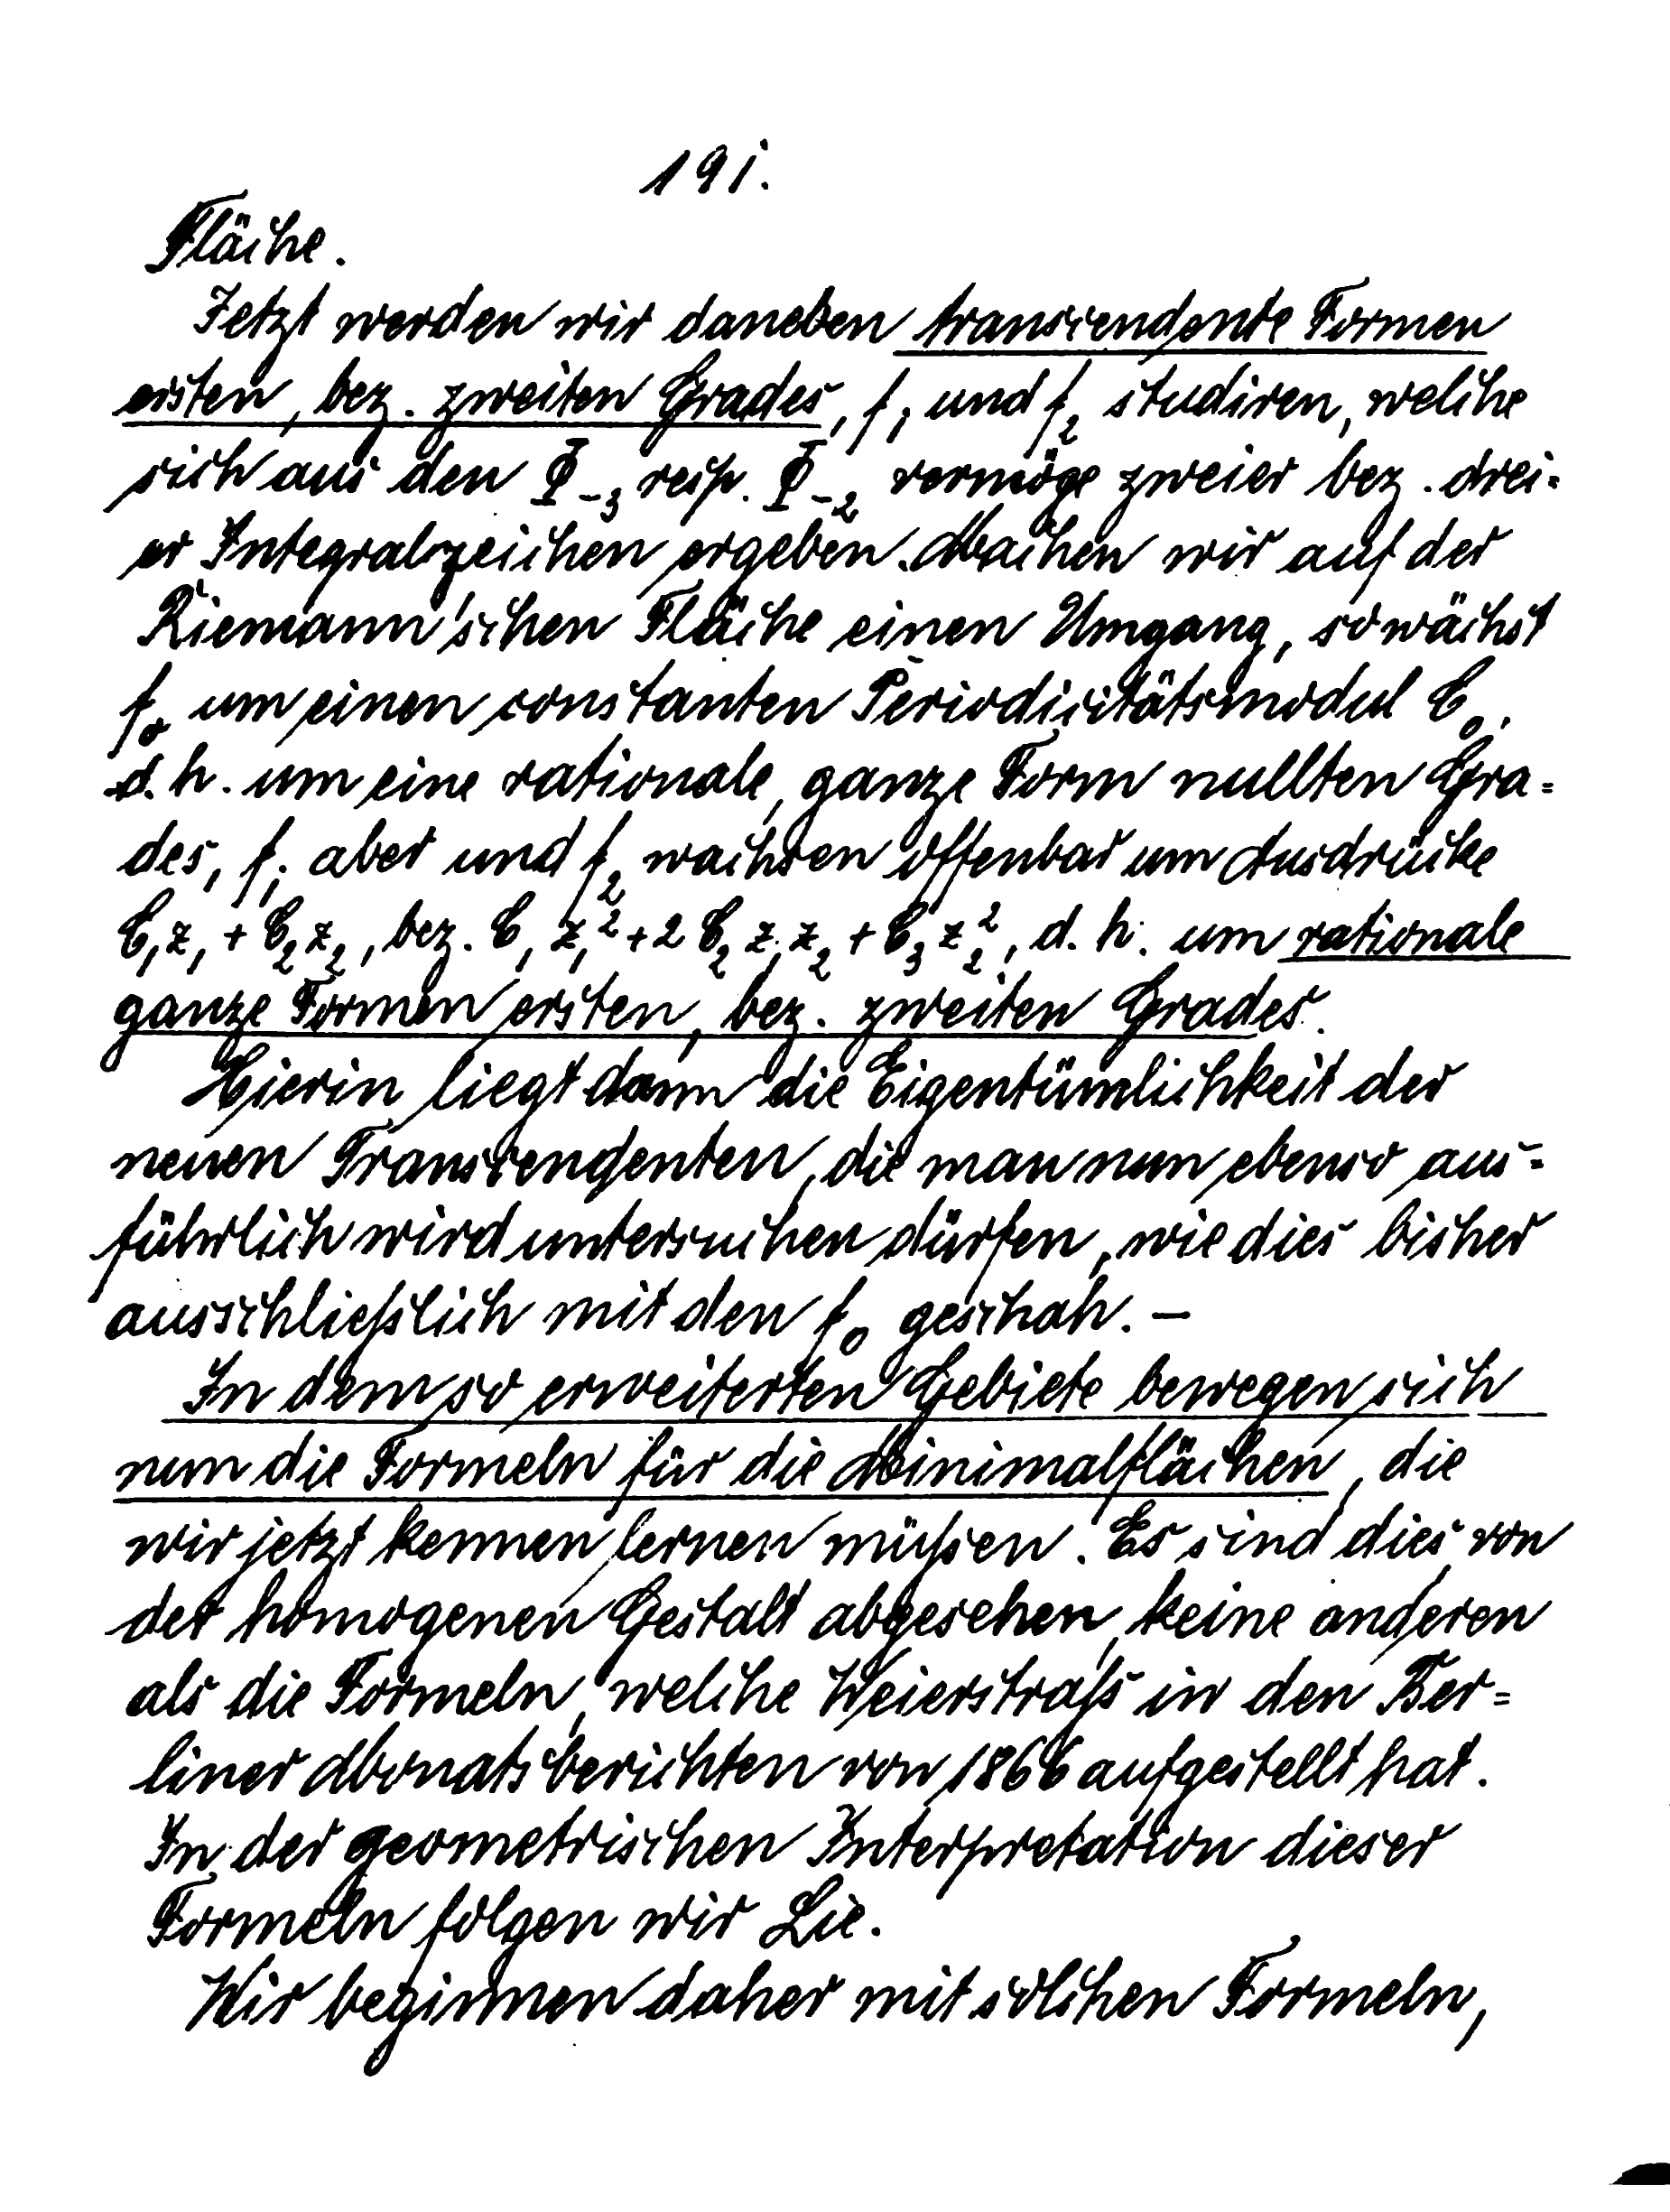 191.
Fläche.
Jetzt werden wir daneben transcendente Formen
ersten, bez. zweiten Grades, f₁ und f₂ studiren, welche
sich aus den Φ₋₃ resp. Φ₋₂ vermöge zweier bez. drei=
er Integralzeichen ergeben. Machen wir auf der
Riemann'schen Fläche einen Umgang, so wächst
f₀ um einen constanten Periodicitätsmodul C₀,
d. h. um eine rationale, ganze Form nullten Gra=
des, f₁ aber und f₂ wachsen offenbar um Ausdrücke
C₁z₁ + C₂z₂, bez. C₁z₁² + 2C₂z₁z₂ + C₃z₂², d. h. um rationale
ganze Formen ersten, bez. zweiten Grades.
Hierin liegt dann die Eigentümlichkeit der
neuen Transcendenten, die man nun ebenso aus=
führlich wird untersuchen dürfen, wie dies bisher
ausschließlich mit den f₀ geschah. —
In dem so erweiterten Gebiete bewegen sich
nun die Formeln für die Minimalflächen, die
wir jetzt kennen lernen müßen. Es sind dies von
der homogenen Gestalt abgesehen, keine anderen
als die Formeln, welche Weierstraß in den Ber=
liner Monatsberichten von 1866 aufgestellt hat.
In der geometrischen Interpretation dieser
Formeln folgen wir Lie.
Wir beginnen daher mit solchen Formeln,